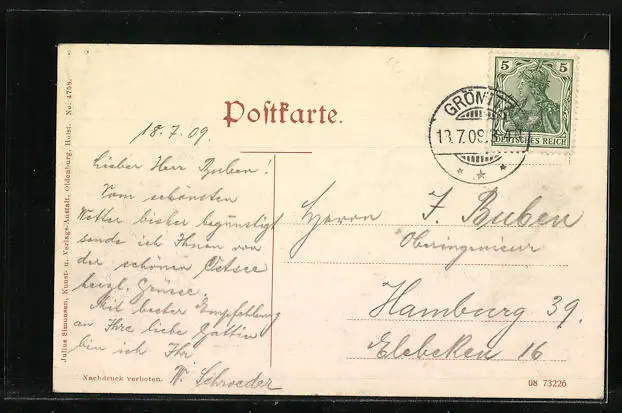 Postkarte.
5 5
DEUTSCHES REICH
13.7.09.
18.7.09.
Lieber Herr Buben!
Vom schönsten
Wetter bisher begünstigt
sende ich Ihnen von
der schönen Ostsee
herzl. Grüsse.
Mit bester Empfehlung
an Ihre liebe Gattin
bin ich Ihr
W. Schroeder
Herrn J. Buben
Oberingenieur
Hamburg 39.
Elebeken 16
Julius Simonsen, Kunst- u. Verlags-Anstalt, Oldenburg, Holst. No. 4758.
Nachdruck verboten.
08 73226